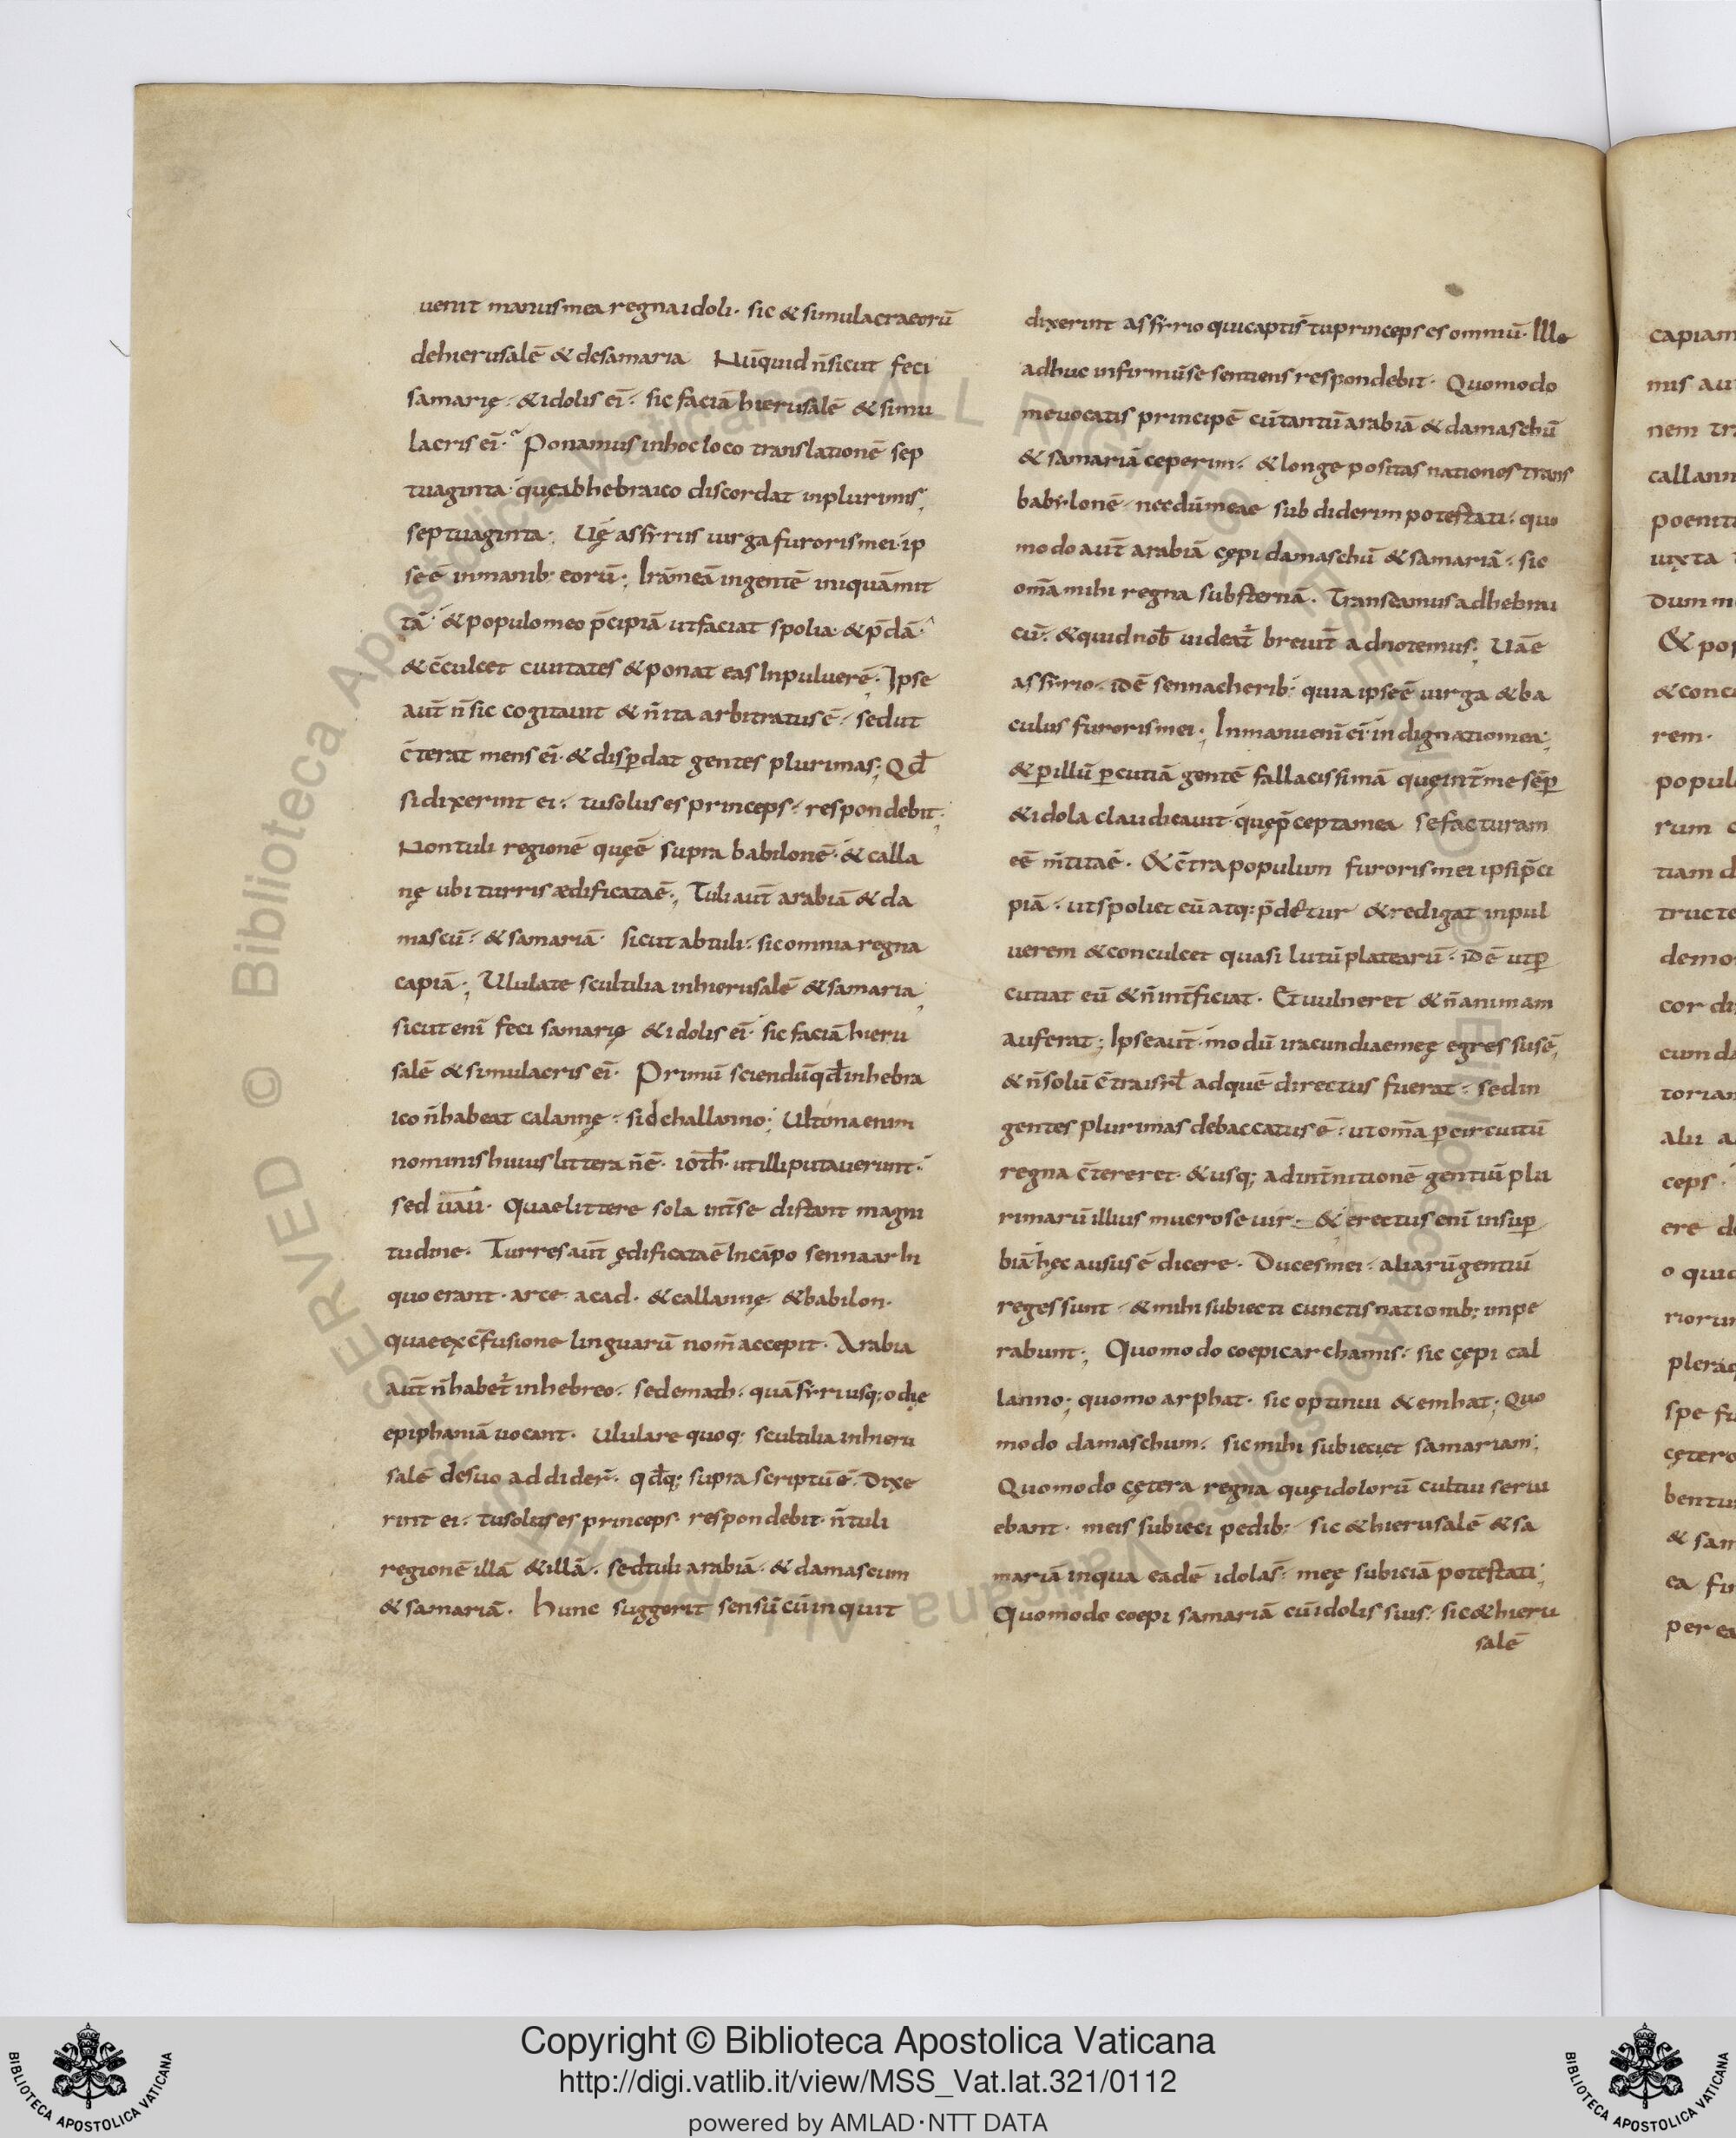 uenit manus mea regna idoli· sic & simulacra eorū
de hierusalē & de samaria Nūquid n̄ sicut feci
samarię· & idolis ei᷒· sic faciā hierusalē & simu
lacris ei᷒· Ponamus in hoc loco translationē sep
tuaginta· quę ab hebraico discordat in plurimis;
septuaginta; Uę assyrius uirga furoris mei· ip
se ē in manib: eorū; Irā meā in gentē iniquā mit
tā· & populo meo p̄cipiā ut faciat spolia· & p̄dā·
& c̄culcet ciuitates & ponat eas In puluerē; Ipse
aut̄ n̄ sic cogitauit & n̄ ita arbitratus ē· sed ut
c̄terat mens ei᷒· & disꝑdat gentes plurimas; Qđ
si dixerint ei· tu solus es princeps· respondebit;
Non tuli regionē quę ē supra babilonē· & calla
nę ubi turris ædificata ē; Tuli aut̄ arabiā & da
mascū· & samariā· sicut ab tuli· sic omnia regna
capiā; Ululate scultilia in hierusalē & samaria;
sicut eni᷒ feci samarię & idolis ei᷒· sic faciā hieru
salē & simulacris ei᷒· Primū sciendū qđ in hebra
ico n̄ habeat calannę· sid challanno; Ultima enim
nominis huius littera n̄ ē· ioth· ut illi putauerunt·
sed uau· Quae littere sola int̄ se distant magni
tudine· Turres aut̄ ędificata ē In cāpo sennaar In
quo erant· arce· acad· & callannę· & babilon·
quae ex c̄fusione linguarū nom̄ accepit· Arabia
aut̄ n̄ habet̄ in hebreo· sed emath· quā syri usq; odie
epiphaniā uocant· Ululare quoq: scultilia in hieru
salē de suo addider̄· qđq; supra scriptū ē· Dixe
rint ei· tu solus es princeps· respondebit· n̄ tuli
regionē illā & illā· sed tuli arabiā· & damascum
& samariā· Hunc suggerit sensū cū inquit
dixerint assyrio qui captis̄ tu princeps es omniū· Ille
adhuc infirmū se sentiens respondebit· Quomodo
me uocatis principē cū tantū arabiā & damaschū
& samariā ceperim· & longe positas nationes trans
babylonē· necdū meae subdiderim potestati· quo
modo aut̄ arabiā cępi damaschū & samariā· sic
om̄a mihi regna substernā· Transeamus ad hebrai
cū· & quid nob̄ uideat̄ breuit̄ adnotemus; Uae
assyrio· idē sennacherib· quia ipse ē uirga & ba
culus furoris mei; In manu eni᷒ ei᷒ indignatio mea;
& ꝑ illū ꝑcutiā gentē fallacissimā quę int̄ me sēꝑ
& idola claudicauit· quę p̄cepta mea se facturam
eē m̄tita ē· & c̄tra populum furoris mei ipsi p̄ci
piā· ut spoliet eū atq: p̄detur & redigat in pul
uerem & conculcet quasi lutū platearū· idē ut ꝑ
cutiat eū & n̄ int̄ficiat· Et uulneret & n̄ animam
auferat; Ipse aut̄· modū iracundiae meę egressus ē;
& n̄ solū c̄tra isrl̄ ad quē directus fuerat· sed in
gentes plurimas debaccatus ē· ut om̄a ꝑ circuitū
regna c̄tereret· & usq; ad int̄nitionē gentiū plu
rimarū illius mucro seuir& & erectus eni᷒ in suꝑ
biā hęc ausus ē dicere· Duces mei· aliarū gentiū
reges sunt· & mihi subiecti cunctis nationib; impe
rabunt; Quomodo coepi carchamis· sic cępi cal
lanno; quomo arphat· sic optinui & emhat; Quo
modo damaschum· sic mihi subieciet samariam;
Quomodo cętera regna quę idolorū cultui serui
ebant· meis subieci pedib:· sic & hierusalē & sa
mariā in qua eadē idola s̄· meę subiciā potestati;
Quomodo coepi samariā cū idolis suis· sic & hieru
salē